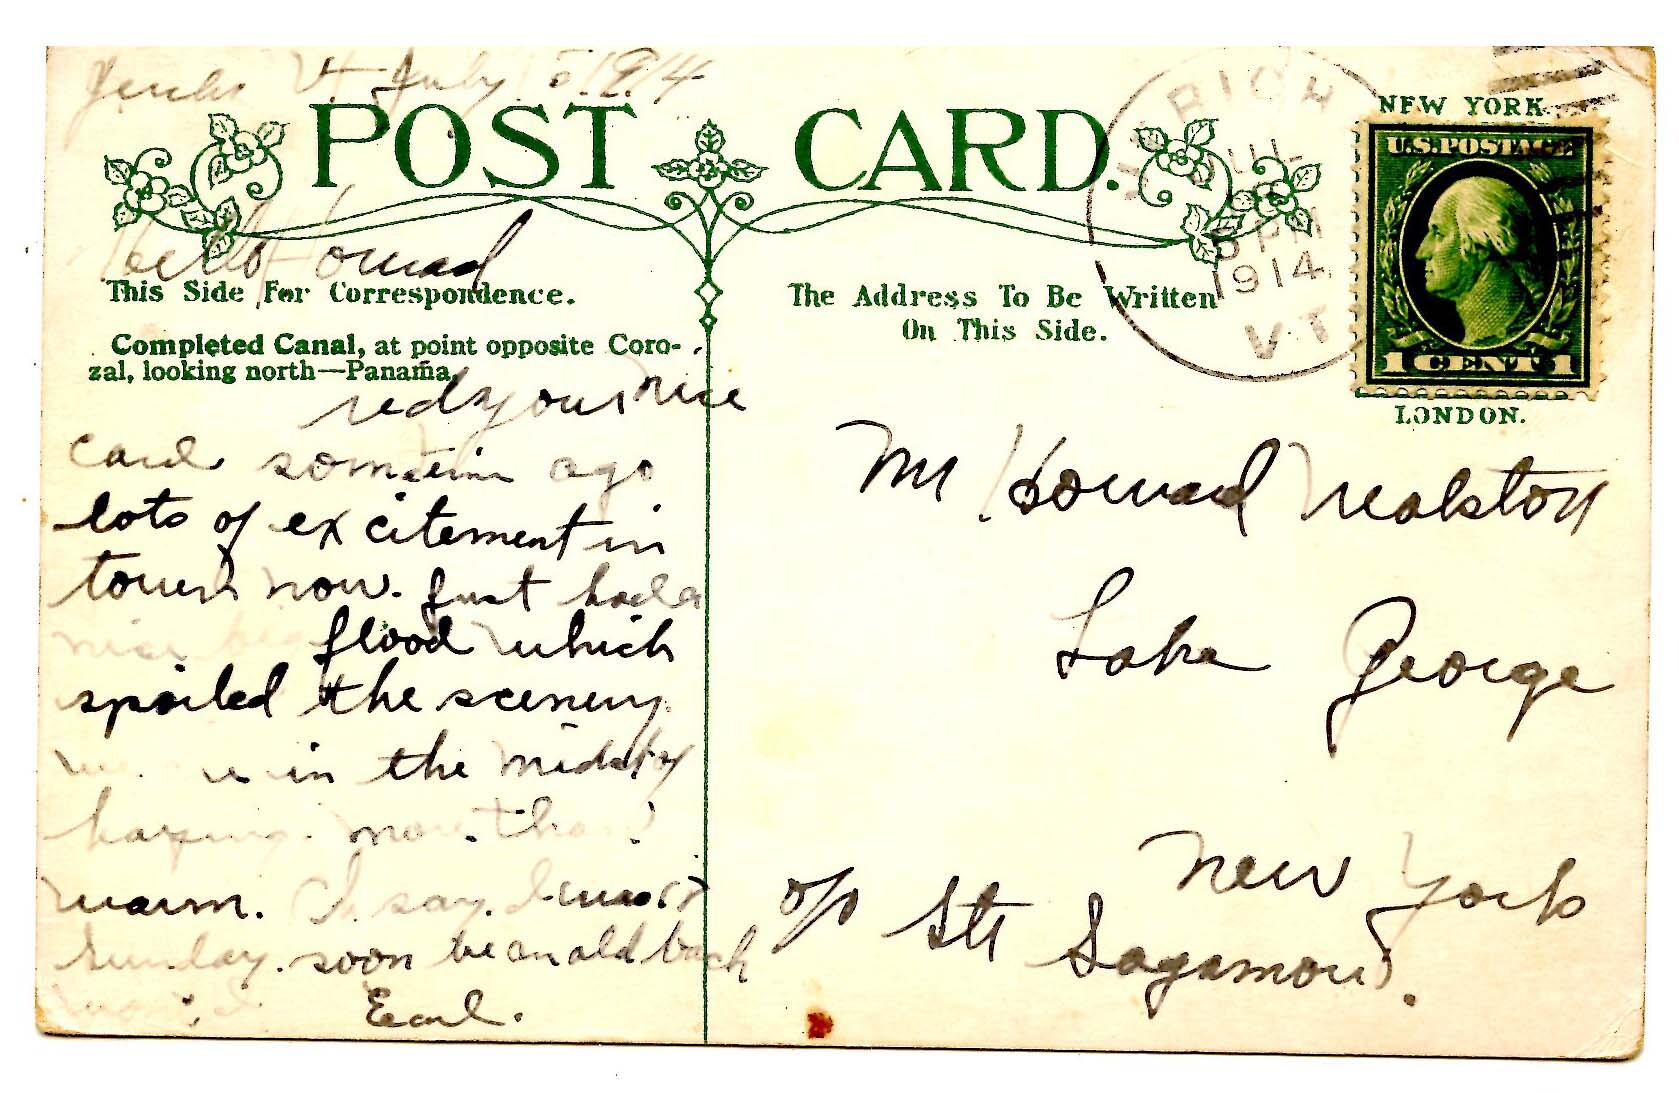 Vt. July 5 1914
POST CARD.
Hello Howard
This Side For Correspondence.
Completed Canal, at point opposite Coro-
zal, looking north—Panama.
recd your nice
card sometime ago
lots of excitement in
town now. Just had a
nice flood which
spoiled the scenery
in the midst of
haying. more than
warm. I say. I was
Sunday. soon be an old bach
Earl.
The Address To Be Written
On This Side.
JUL
5 PM
1914
VT
NEW YORK
U.S. POSTAGE
1 CENT 1
LONDON.
Mr Howard
Lake George
New York
c/o Str Sagamore.